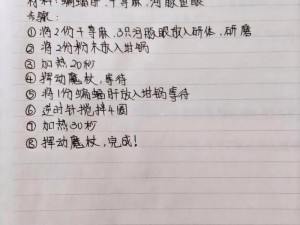 材料:蝙蝠肝,干荨麻,河豚鱼眼
步骤:
①将2份干荨麻,3只河豚眼放入研体,研磨
②将2份粉末放入坩锅
③加热20秒
④挥动魔杖,等待
⑤将1份蝙蝠肝放入坩锅等待
⑥逆时针搅拌4圈
⑦加热30秒
⑧挥动魔杖,完成!